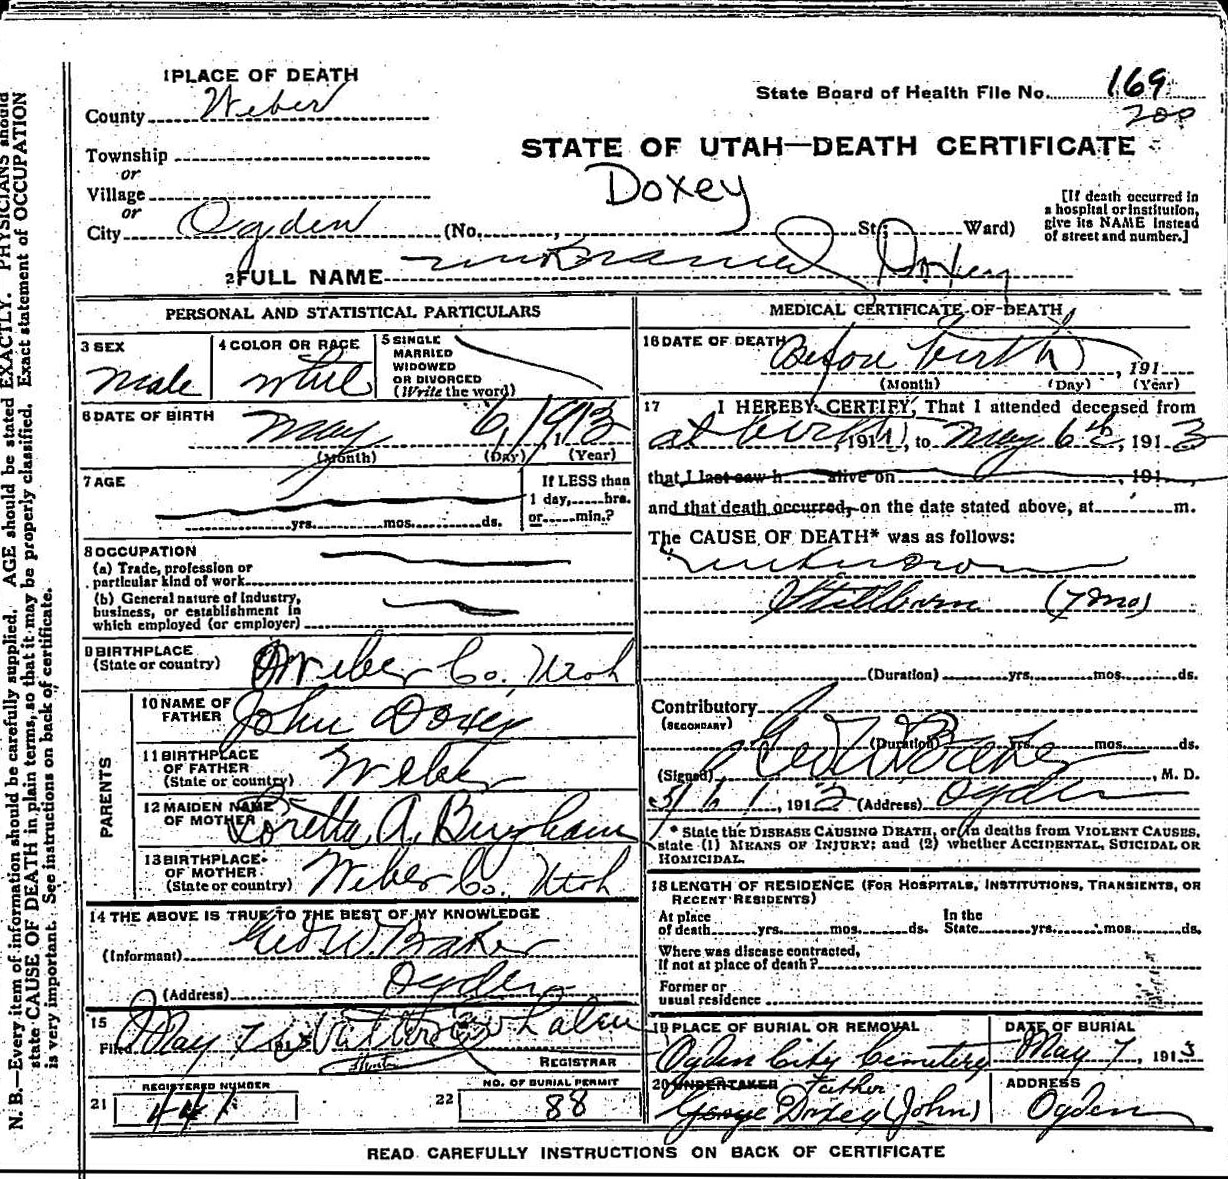 1 PLACE OF DEATH
State Board of Health File No. 169
200
County Weber
Township
STATE OF UTAH—DEATH CERTIFICATE
or
Village
Doxey
or
City Ogden (No. , St; Ward)
[If death occurred in
a hospital or institution,
give its NAME instead
of street and number.]
2 FULL NAME Unnamed Doxey
PERSONAL AND STATISTICAL PARTICULARS
3 SEX
Male
4 COLOR OR RACE
white
5 SINGLE
MARRIED
WIDOWED
OR DIVORCED
(Write the word)
6 DATE OF BIRTH
May 6, 1913
(Month) (Day) (Year)
7 AGE
If LESS than
1 day, hrs.
or min.?
yrs. mos. ds.
8 OCCUPATION
(a) Trade, profession or
particular kind of work
(b) General nature of industry,
business, or establishment in
which employed (or employer)
9 BIRTHPLACE
(State or country) Weber Co. Utah
PARENTS
10 NAME OF
FATHER John Doxey
11 BIRTHPLACE
OF FATHER
(State or country) Weber
12 MAIDEN NAME
OF MOTHER Loretta A. Bingham
13 BIRTHPLACE
OF MOTHER
(State or country) Weber Co. Utah
14 THE ABOVE IS TRUE TO THE BEST OF MY KNOWLEDGE
(Informant) Geo W. Baker
(Address) Ogden
15
Filed May 7 191 Whalen
REGISTRAR
REGISTERED NUMBER
21 441
NO. OF BURIAL PERMIT
22 88
MEDICAL CERTIFICATE OF DEATH
16 DATE OF DEATH Before birth , 191
(Month) (Day) (Year)
17 I HEREBY CERTIFY, That I attended deceased from
at birth , 191 , to May 6th, 1913
that I last saw h alive on , 191
and that death occurred, on the date stated above, at m.
The CAUSE OF DEATH* was as follows:
unknown
Stillborn (7 mo)
(Duration) yrs. mos. ds.
Contributory
(SECONDARY)
(Duration) yrs. mos. ds.
(Signed) Geo W Baker , M. D.
5/6/ , 1913 (Address) Ogden
* State the DISEASE CAUSING DEATH, or, in deaths from VIOLENT CAUSES,
state (1) MEANS OF INJURY; and (2) whether ACCIDENTAL, SUICIDAL OR
HOMICIDAL.
18 LENGTH OF RESIDENCE (FOR HOSPITALS, INSTITUTIONS, TRANSIENTS, OR
RECENT RESIDENTS)
At place
of death yrs. mos. ds.
In the
State yrs. mos. ds.
Where was disease contracted,
If not at place of death?
Former or
usual residence
19 PLACE OF BURIAL OR REMOVAL
Ogden City Cemetery
DATE OF BURIAL
May 7, 1913
20 UNDERTAKER Father
George Doxey (John)
ADDRESS
Ogden
READ CAREFULLY INSTRUCTIONS ON BACK OF CERTIFICATE
N. B.—Every item of information should be carefully supplied. AGE should be stated EXACTLY. PHYSICIANS should
state CAUSE OF DEATH in plain terms, so that it may be properly classified. Exact statement of OCCUPATION
is very important. See instructions on back of certificate.